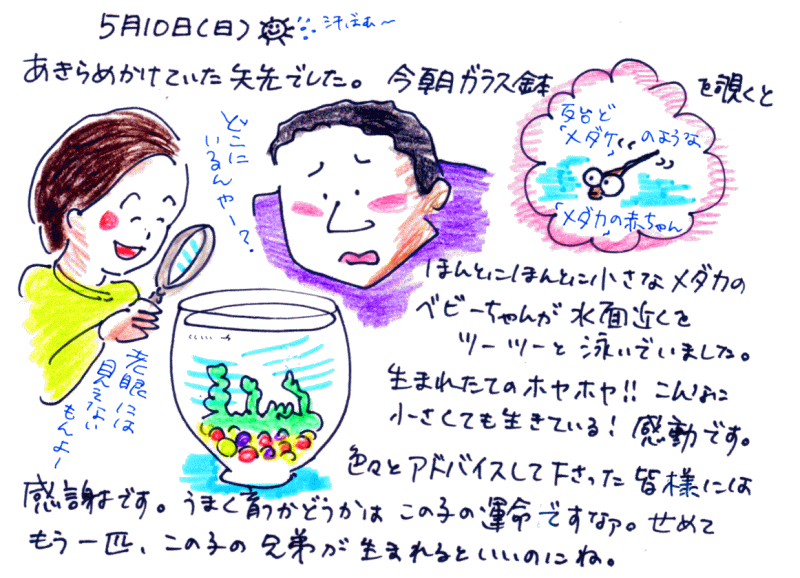 5月10日(日) 汗ばむ～
あきらめかけていた矢先でした。今朝ガラス鉢
を覗くと
反台ど
「メダケ」のような
「メダカの赤ちゃん」
どこに
いるんやー？
ほんとにほんとに小さなメダカの
ベビーちゃんが水面近くを
ツーツーと泳いでいました。
老眼には
見えない
もんよー
生まれたてのホヤホヤ!! こんなに
小さくても生きている！感動です。
色々とアドバイスして下さった皆様には
感謝です。うまく育つかどうかはこの子の運命ですなァ。せめて
もう一匹、この子の兄弟が生まれるといいのにね。